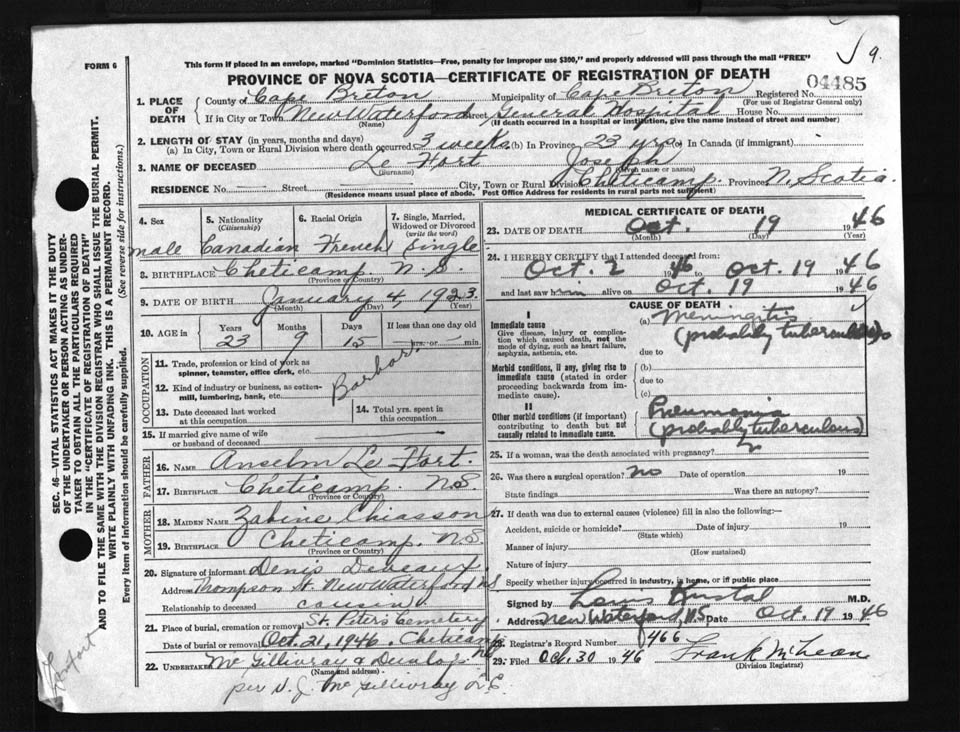 9.
FORM 6
This form if placed in an envelope, marked "Dominion Statistics—Free, penalty for improper use $300," and properly addressed will pass through the mail "FREE"
PROVINCE OF NOVA SCOTIA—CERTIFICATE OF REGISTRATION OF DEATH
04485
1. PLACE OF DEATH
County of Cape Breton Municipality of Cape Breton Registered No.
(For use of Registrar General only)
If in City or Town New Waterford Street General Hospital House No.
(Name) (If death occurred in a hospital or institution, give the name instead of street and number)
2. LENGTH OF STAY (in years, months and days)
(a) In City, Town or Rural Division where death occurred 3 weeks (b) In Province 23 yrs. (c) In Canada (if immigrant)
3. NAME OF DECEASED Le Fort Joseph
(Surname) (Given name or names)
RESIDENCE No. Street City, Town or Rural Division Cheticamp. Province N. Scotia
(Residence means usual place of abode. Post Office Address for residents in rural parts not sufficient)
4. Sex
male
5. Nationality
(Citizenship)
Canadian
6. Racial Origin
French
7. Single, Married, Widowed or Divorced
(write the word)
Single
8. BIRTHPLACE Cheticamp N.S.
(Province or Country)
9. DATE OF BIRTH January 4, 1923.
(Month) (Day) (Year)
10. AGE in
Years Months Days If less than one day old
23 9 15 hrs. or min.
OCCUPATION
11. Trade, profession or kind of work as spinner, teamster, office clerk, etc.
Barbor.
12. Kind of industry or business, as cotton-mill, lumbering, bank, etc.
13. Date deceased last worked at this occupation
14. Total yrs. spent in this occupation
15. If married give name of wife or husband of deceased
FATHER
16. NAME Anselm Le Fort.
17. BIRTHPLACE Cheticamp N.S.
(Province or Country)
MOTHER
18. MAIDEN NAME Zabine Chiasson
19. BIRTHPLACE Cheticamp. N.S.
(Province or Country)
20. Signature of informant Denis Deveaux
Address Thompson St. New Waterford NS
Relationship to deceased cousin
21. Place of burial, cremation or removal St. Peters Cemetery
Date of burial or removal Oct. 21, 1946. Cheticamp NS
22. UNDERTAKER McGillivray & Dunlop
(Name and address)
per N. J. McGillivray
MEDICAL CERTIFICATE OF DEATH
23. DATE OF DEATH Oct. 19 1946
(Month) (Day) (Year)
24. I HEREBY CERTIFY that I attended deceased from:
Oct. 2 1946 to Oct. 19 1946
and last saw him alive on Oct 19 1946
CAUSE OF DEATH
I
Immediate cause
Give disease, injury or complication which caused death, not the mode of dying, such as heart failure, asphyxia, asthenia, etc.
(a) Meningitis
(probably tuberculous)
due to
Morbid conditions, if any, giving rise to immediate cause (stated in order proceeding backwards from immediate cause).
(b)
due to
(c)
II
Other morbid conditions (if important) contributing to death but not causally related to immediate cause.
Pneumonia
(probably tuberculous)
25. If a woman, was the death associated with pregnancy?
26. Was there a surgical operation? no Date of operation 19
State findings Was there an autopsy?
27. If death was due to external causes (violence) fill in also the following:—
Accident, suicide or homicide? Date of injury 19
(State which)
Manner of injury
(How sustained)
Nature of injury
Specify whether injury occurred in industry, in home, or in public place
Signed by Louis M.D.
Address New Waterford, N.S Date Oct. 19 1946
28. Registrar's Record Number 466
29. Filed Oct. 30 1946 Frank McLean
(Division Registrar)
SEC. 46—VITAL STATISTICS ACT MAKES IT THE DUTY
OF THE UNDERTAKER OR PERSON ACTING AS UNDER-
TAKER TO OBTAIN ALL THE PARTICULARS REQUIRED
IN THE "CERTIFICATE OF REGISTRATION OF DEATH"
AND TO FILE THE SAME WITH THE DIVISION REGISTRAR WHO SHALL ISSUE THE BURIAL PERMIT.
WRITE PLAINLY WITH UNFADING INK. THIS IS A PERMANENT RECORD.
Every item of information should be carefully supplied. (See reverse side for instructions.)
LeFort